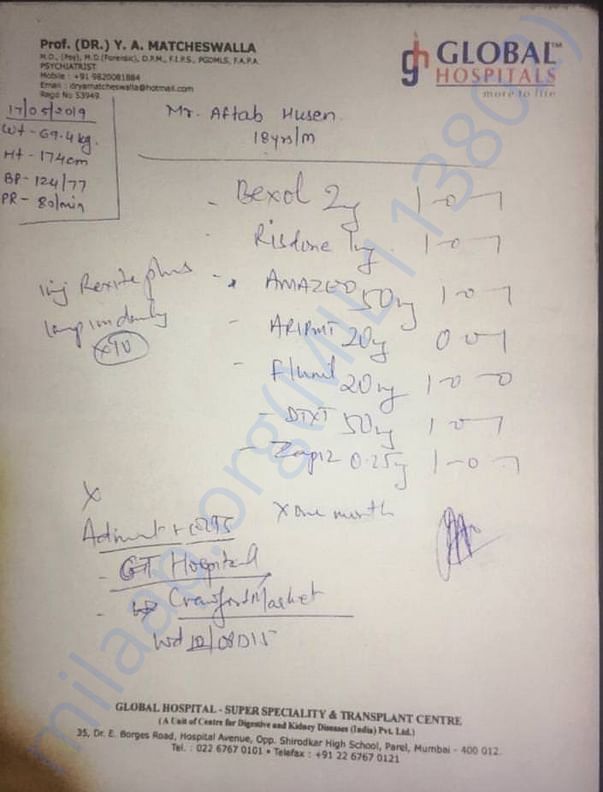 Prof. (DR.) Y. A. MATCHESWALLA
M.D., (Psy), M.D.(Forensic), D.P.M., F.I.P.S., PGDMLS, F.A.P.A.
PSYCHIATRIST
Mobile : +91 9820081884
Email : dryamatcheswalla@hotmail.com
Regd No 53949.
gh GLOBAL™
HOSPITALS
more to life
17/05/2019
Wt - 69.4 kg.
Ht - 174cm
BP - 124/77
PR - 80/min
Mr. Aftab Husen
18yrs/M
- Bexol 2mg 1-0-1
- Risdone 1mg. 1-0-1
Inj Rexite plus
- AMAZEO 50mg 1-0-1
x10
- ARIPMT 20mg 0 0 1
- Flunil 20mg 1-0-0
- DTXT 50mg 1-0-1
- Zapiz 0.25mg 1-0-1
X
x one month
- GT Hospital
- Crawford Market
milaap.org
GLOBAL HOSPITAL - SUPER SPECIALITY & TRANSPLANT CENTRE
(A Unit of Centre for Digestive and Kidney Diseases (India) Pvt. Ltd.)
35, Dr. E. Borges Road, Hospital Avenue, Opp. Shirodkar High School, Parel, Mumbai - 400 012.
Tel. : 022 6767 0101 • Telefax : +91 22 6767 0121